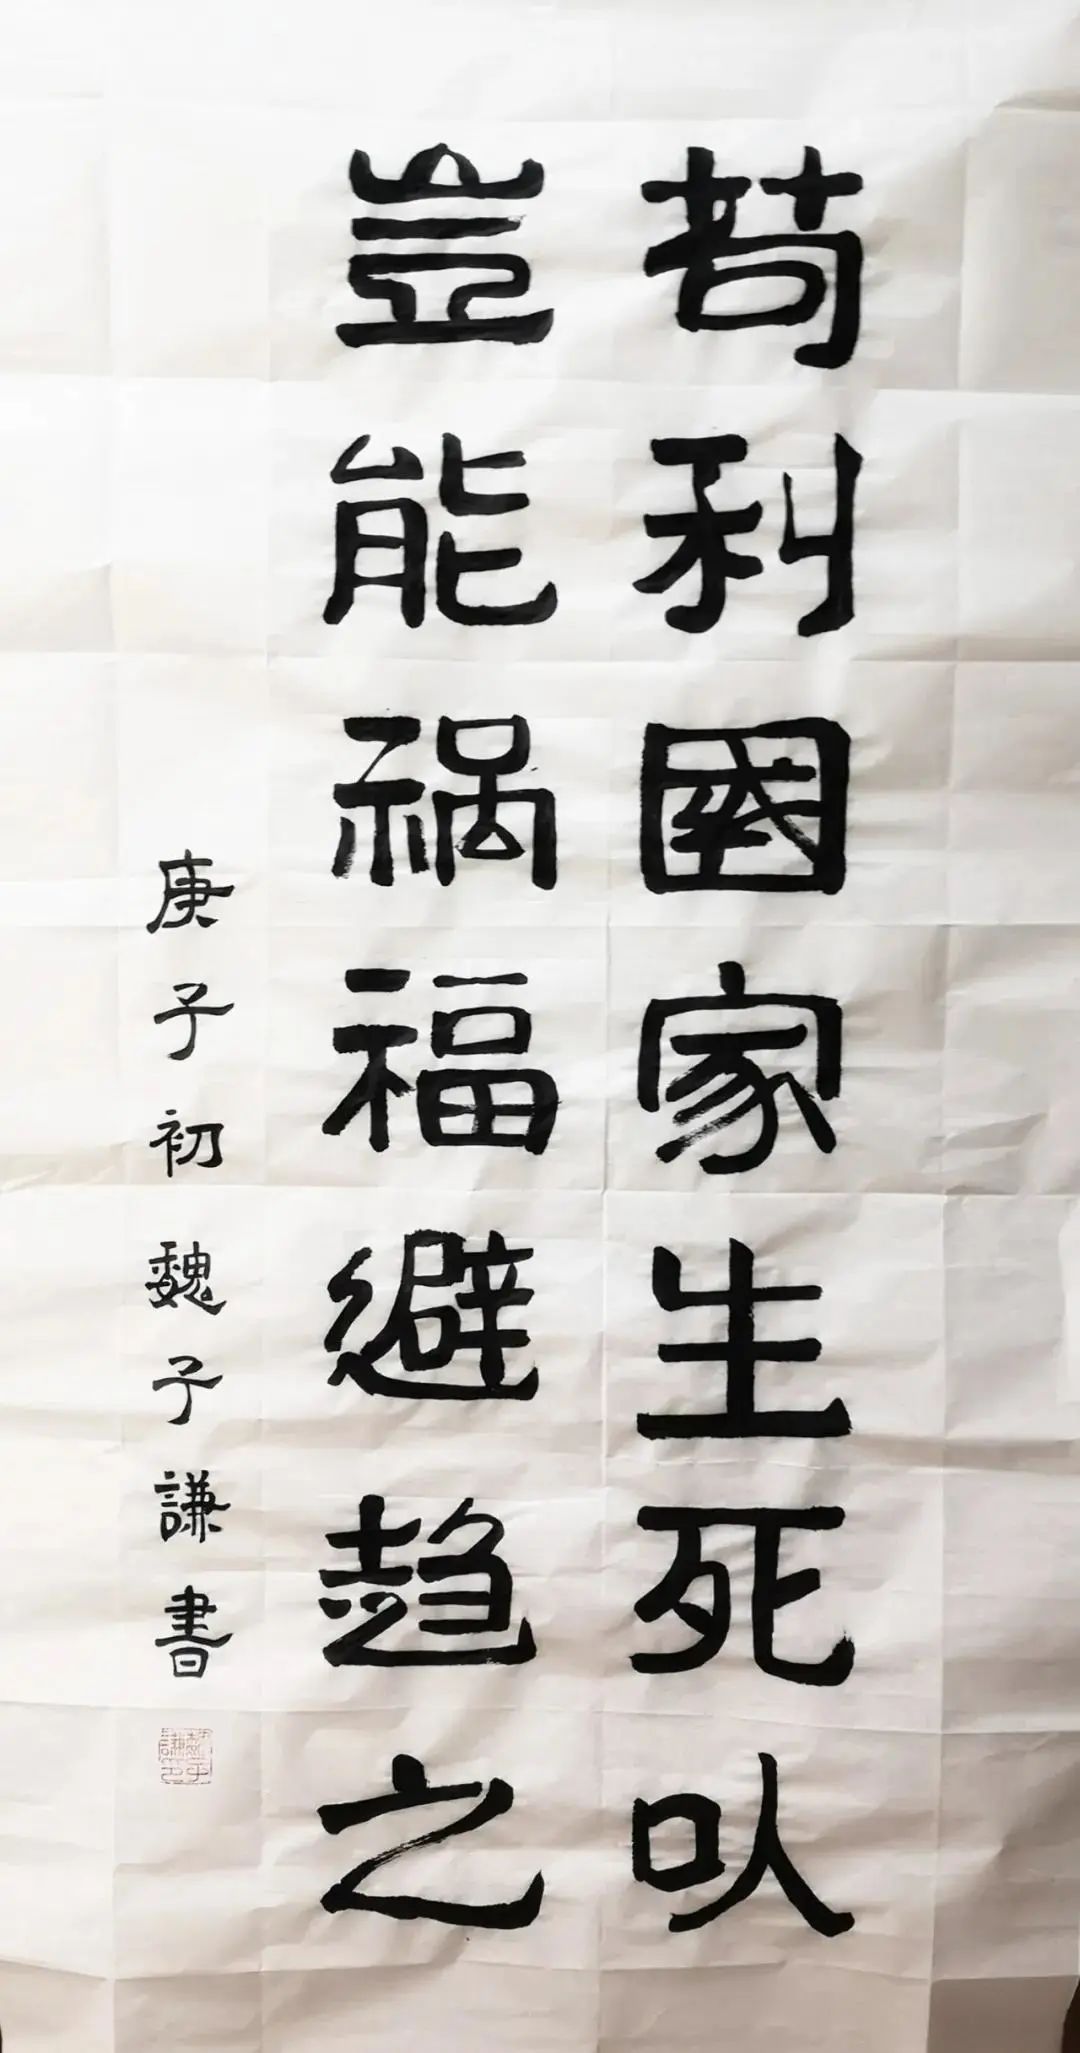 苟利國家生死㕥
豈能祸福避趋之
庚子初魏子謙書